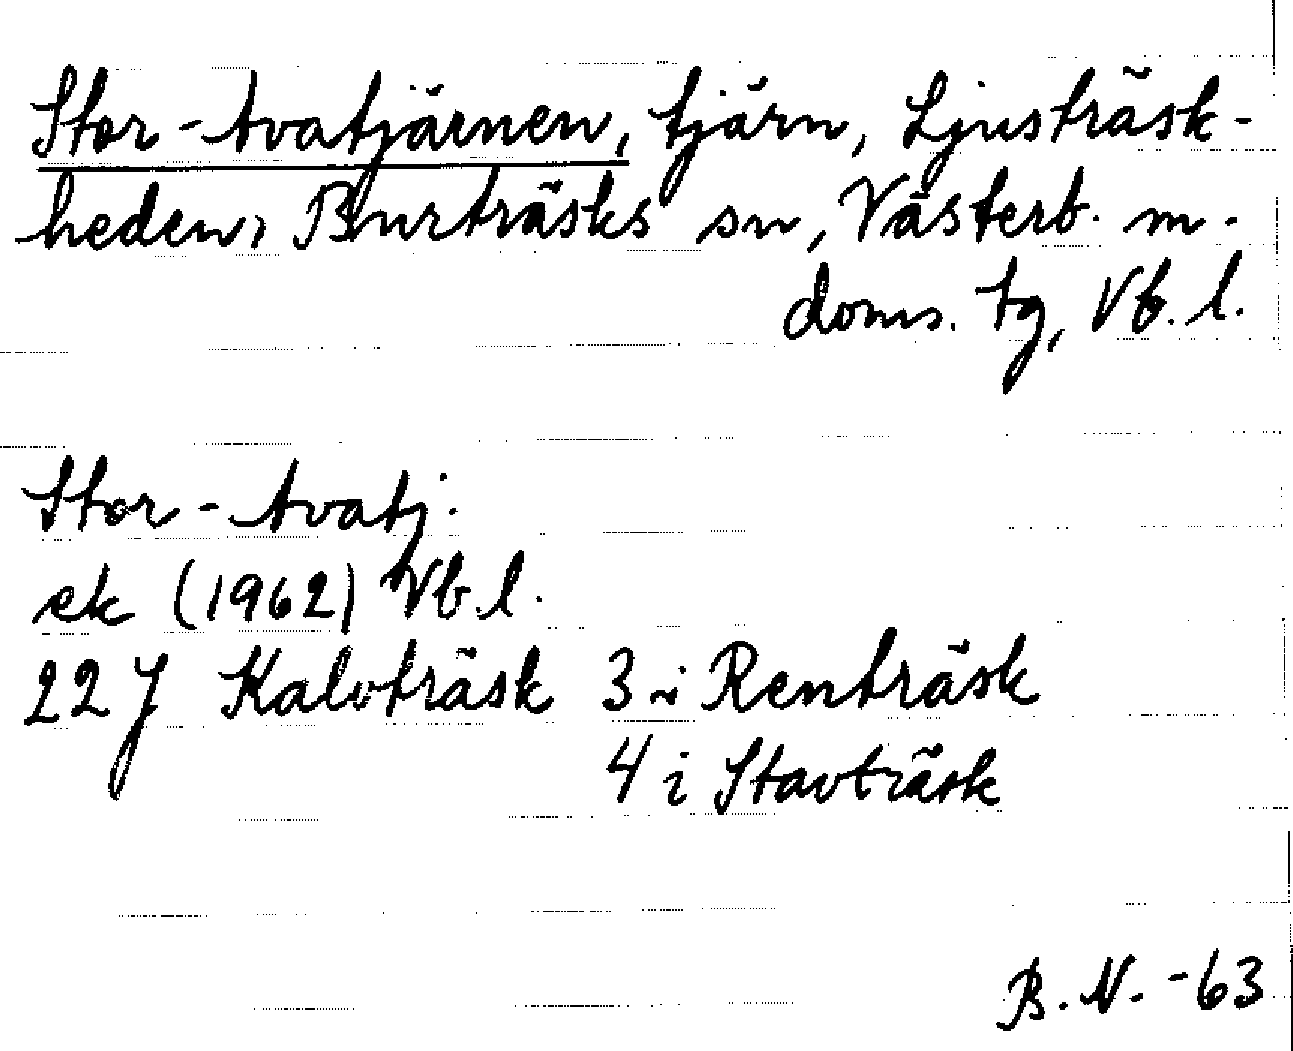 Stor-Avatjärnen, tjärn, Ljusträsk-
heden, Burträsks sn, Västerb. m.
doms. tg, Vb. l.
Stor-Avatj.
ek (1962) Vb. l.
22 J Kalvträsk 3 i Renträsk
4 i Stavträsk
B. N. -63